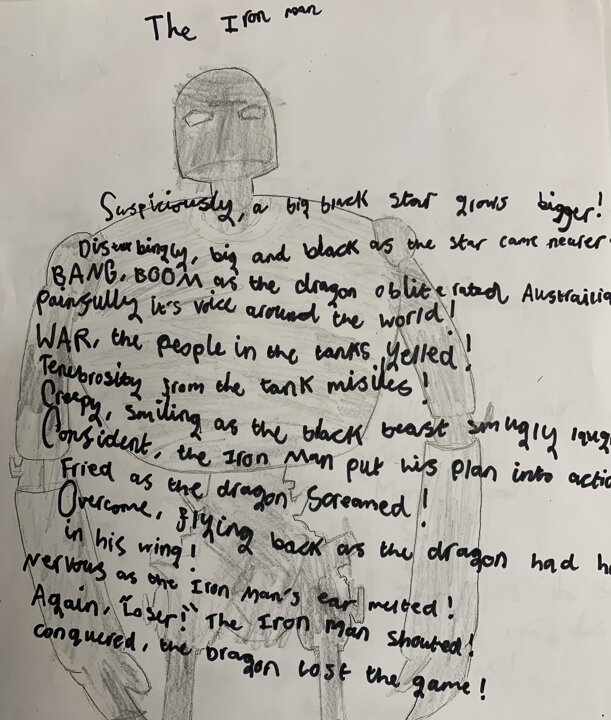 The Iron man
Suspiciously, a big black star grows bigger!
Disturbingly, big and black as the star came nearer
BANG, BOOM as the dragon obliterated Austrailia
Painfully it's voice around the world!
WAR, the people in the tanks yelled!
Tenebrosity from the tank misiles!
Creepy, smiling as the black beast smugly
Confident, the Iron Man put his plan into
Fried as the dragon Screamed!
Overcome, flying back as the dragon had
in his wing!
Nervous as the Iron Man's ear melted!
Again, "Loser!" The Iron man shouted!
conquered, the Dragon Lost the game!